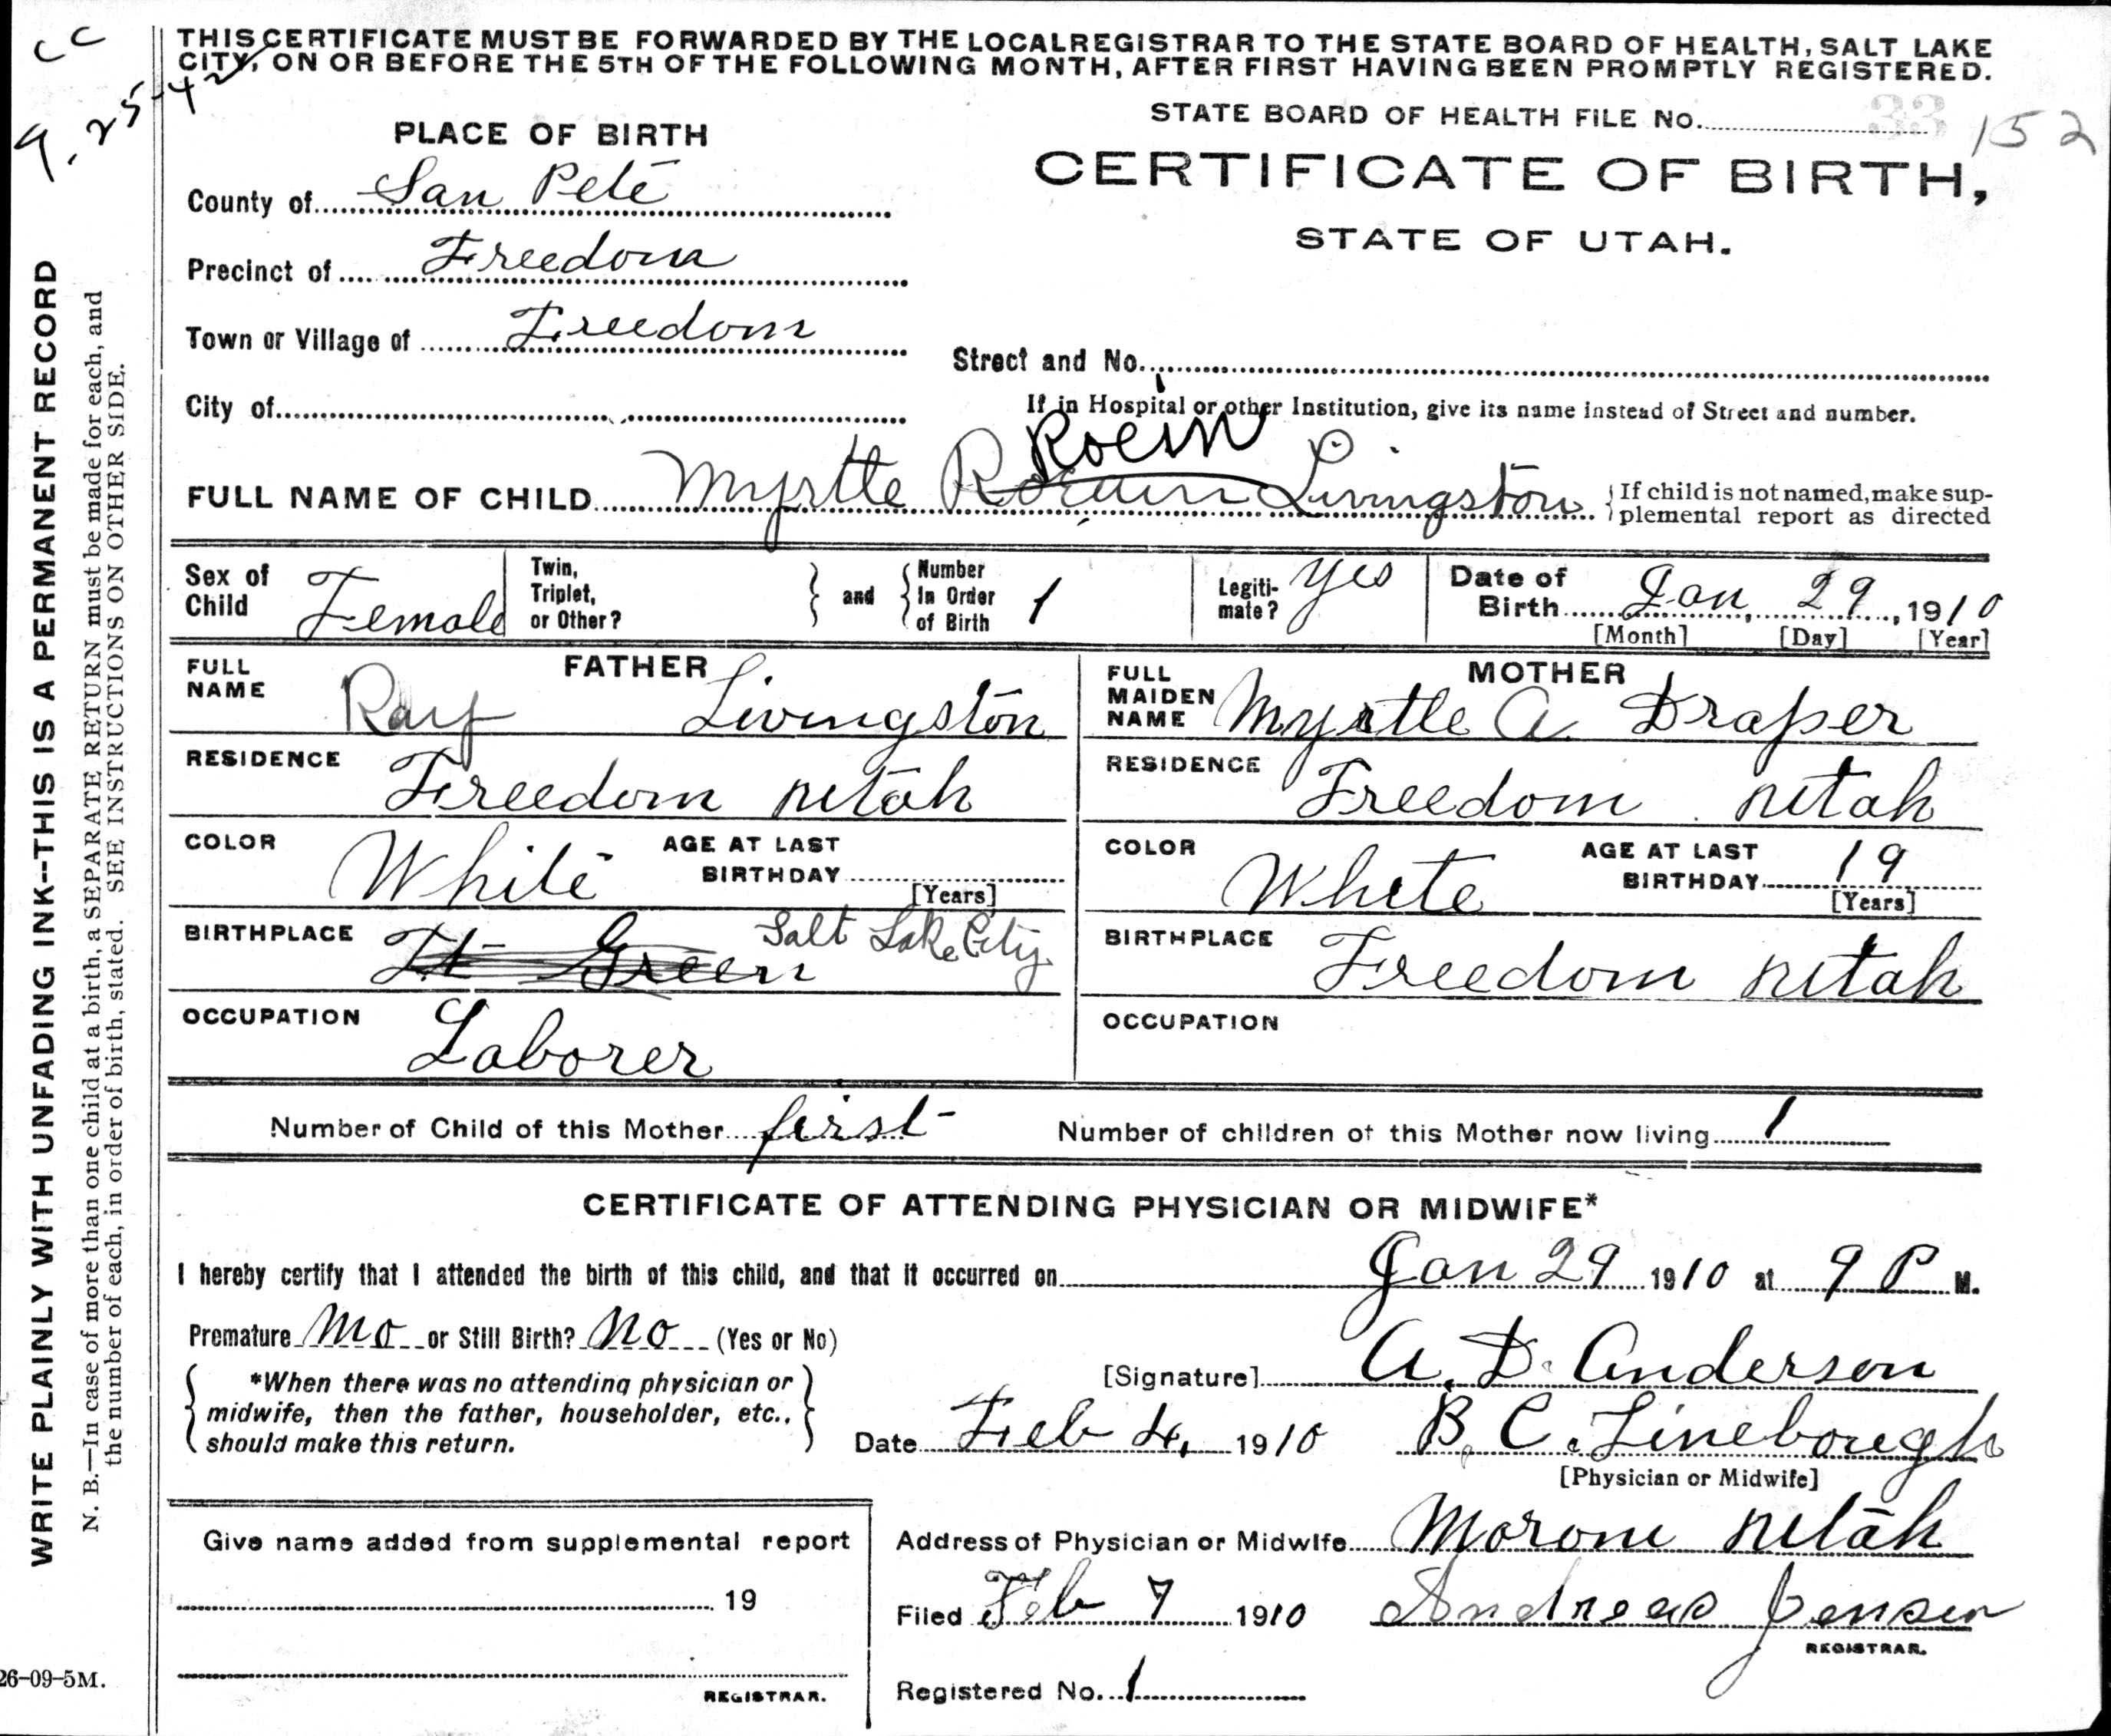 CC
9.25-42
THIS CERTIFICATE MUST BE FORWARDED BY THE LOCAL REGISTRAR TO THE STATE BOARD OF HEALTH, SALT LAKE
CITY, ON OR BEFORE THE 5TH OF THE FOLLOWING MONTH, AFTER FIRST HAVING BEEN PROMPTLY REGISTERED.
STATE BOARD OF HEALTH FILE No. 33 152
PLACE OF BIRTH
CERTIFICATE OF BIRTH,
STATE OF UTAH.
County of San Pete
Precinct of Freedom
Town or Village of Freedom
Street and No.
City of
If in Hospital or other Institution, give its name instead of Street and number.
Roein
FULL NAME OF CHILD Myrtle Livingston
{If child is not named, make sup-
plemental report as directed
Sex of Child Female
Twin, Triplet, or Other? } and { Number In Order of Birth 1
Legiti-mate? yes
Date of Birth Jan, 29, 1910
[Month] [Day] [Year]
FATHER
FULL NAME Ray Livingston
RESIDENCE Freedom Utah
COLOR White AGE AT LAST BIRTHDAY
[Years]
BIRTHPLACE Ft Green Salt Lake City
OCCUPATION Laborer
MOTHER
FULL MAIDEN NAME Myrtle A. Draper
RESIDENCE Freedom Utah
COLOR White AGE AT LAST BIRTHDAY 19
[Years]
BIRTHPLACE Freedom Utah
OCCUPATION
Number of Child of this Mother first Number of children of this Mother now living 1
CERTIFICATE OF ATTENDING PHYSICIAN OR MIDWIFE*
I hereby certify that I attended the birth of this child, and that it occurred on Jan 29 1910 at 9 P M.
Premature No or Still Birth? No (Yes or No)
*When there was no attending physician or
midwife, then the father, householder, etc.,
should make this return.
[Signature] A. D. Anderson
Date Feb 4, 1910 B. C. Linebough
[Physician or Midwife]
Give name added from supplemental report
19
REGISTRAR.
Address of Physician or Midwife Moroni Utah
Filed Feb 7 1910 Andreas Jensen
REGISTRAR.
Registered No. 1
WRITE PLAINLY WITH UNFADING INK--THIS IS A PERMANENT RECORD
N. B.—In case of more than one child at a birth, a SEPARATE RETURN must be made for each, and
the number of each, in order of birth, stated. SEE INSTRUCTIONS ON OTHER SIDE.
26-09-5M.